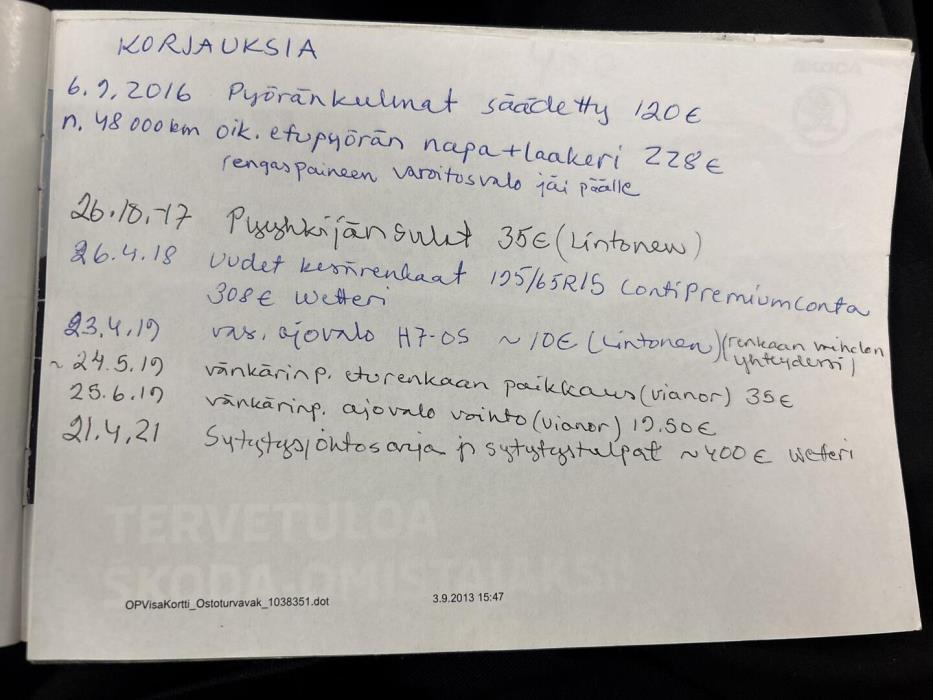 KORJAUKSIA
6.9.2016 Pyöränkulmat säädetty 120€
n. 48 000km oik. etupyörän napa+laakeri 228€
rengaspaineen varoitusvalo jäi päälle
26.10.-17 Pyyhkijän sulat 35€ (Lintonen)
26.4.18 uudet kesärenkaat 195/65R15 ContiPremiumConta
308€ Wetteri
23.4.19 vas. ajovalo H7-OS ~10€ (Lintonen) (renkaan
yhteydessä)
~ 24.5.19 vänkärinp. eturenkaan paikkaus (vianor) 35€
25.6.19 vänkärinp. ajovalo vaihto (vianor) 19.50€
21.4.21 Sytytysjohtosarja ja sytytystulpat ~400€ Wetteri
SKODA
TERVETULOA
ŠKODA-OMISTAJAKSI!
OPVisaKortti_Ostoturvavak_1038351.dot 3.9.2013 15:47